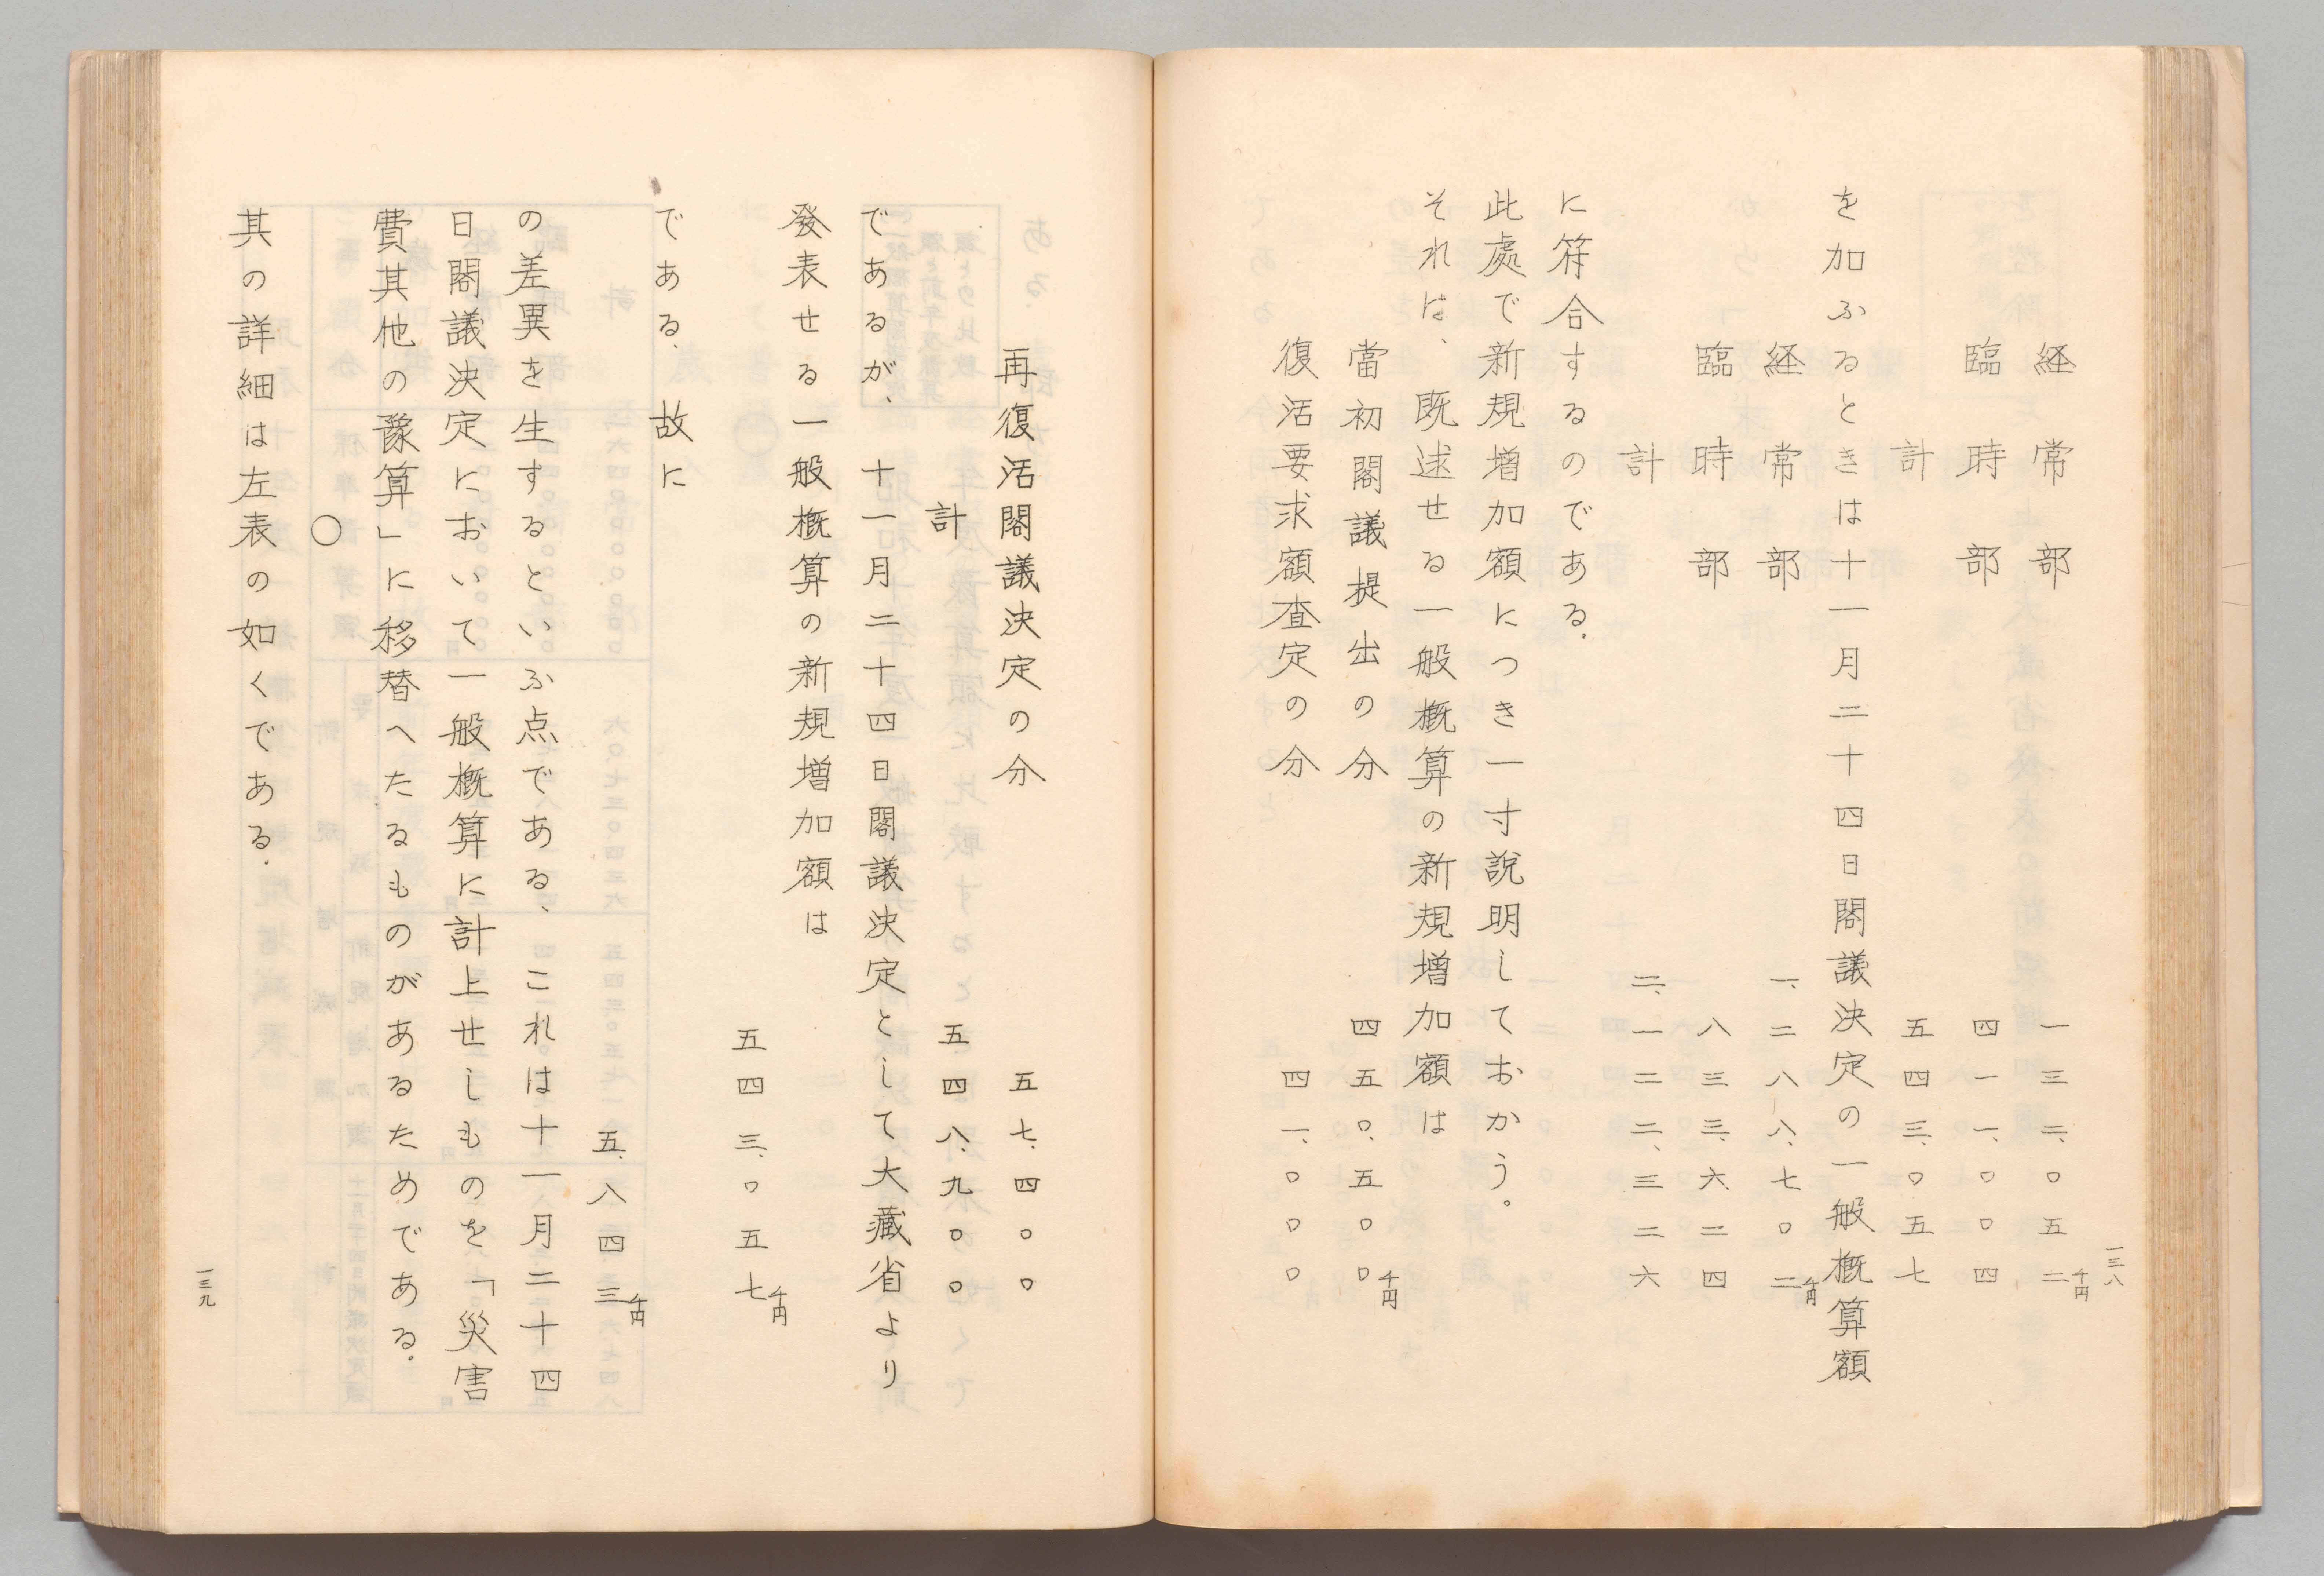 一三八
経常部 一三二、〇五二千円
臨時部 四一一、〇〇四
計 五四三、〇五七
を加ふるときは十一月二十四日閣議決定の一般概算額
経常部 一、二八八、七〇二千円
臨時部 八三三、六二四
計 二、一二二、三二六
に符合するのである.
此處で新規増加額につき一寸説明しておかう。
それは、既述せる一般概算の新規増加額は
當初閣議提出の分 四五〇、五〇〇千円
復活要求額査定の分 四一、〇〇〇
再復活閣議決定の分 五七、四〇〇
計 五四八、九〇〇
であるが、十一月二十四日閣議決定として大藏省より
發表せる一般概算の新規増加額は
五四三、〇五七千円
である、故に
五、八四三千円
の差異を生するといふ点である、これは十一月二十四
日閣議決定において一般概算に計上せしものを「災害
費其他の豫算」に移替へたるものがあるためである.
〇
其の詳細は左表の如くである.
一三九